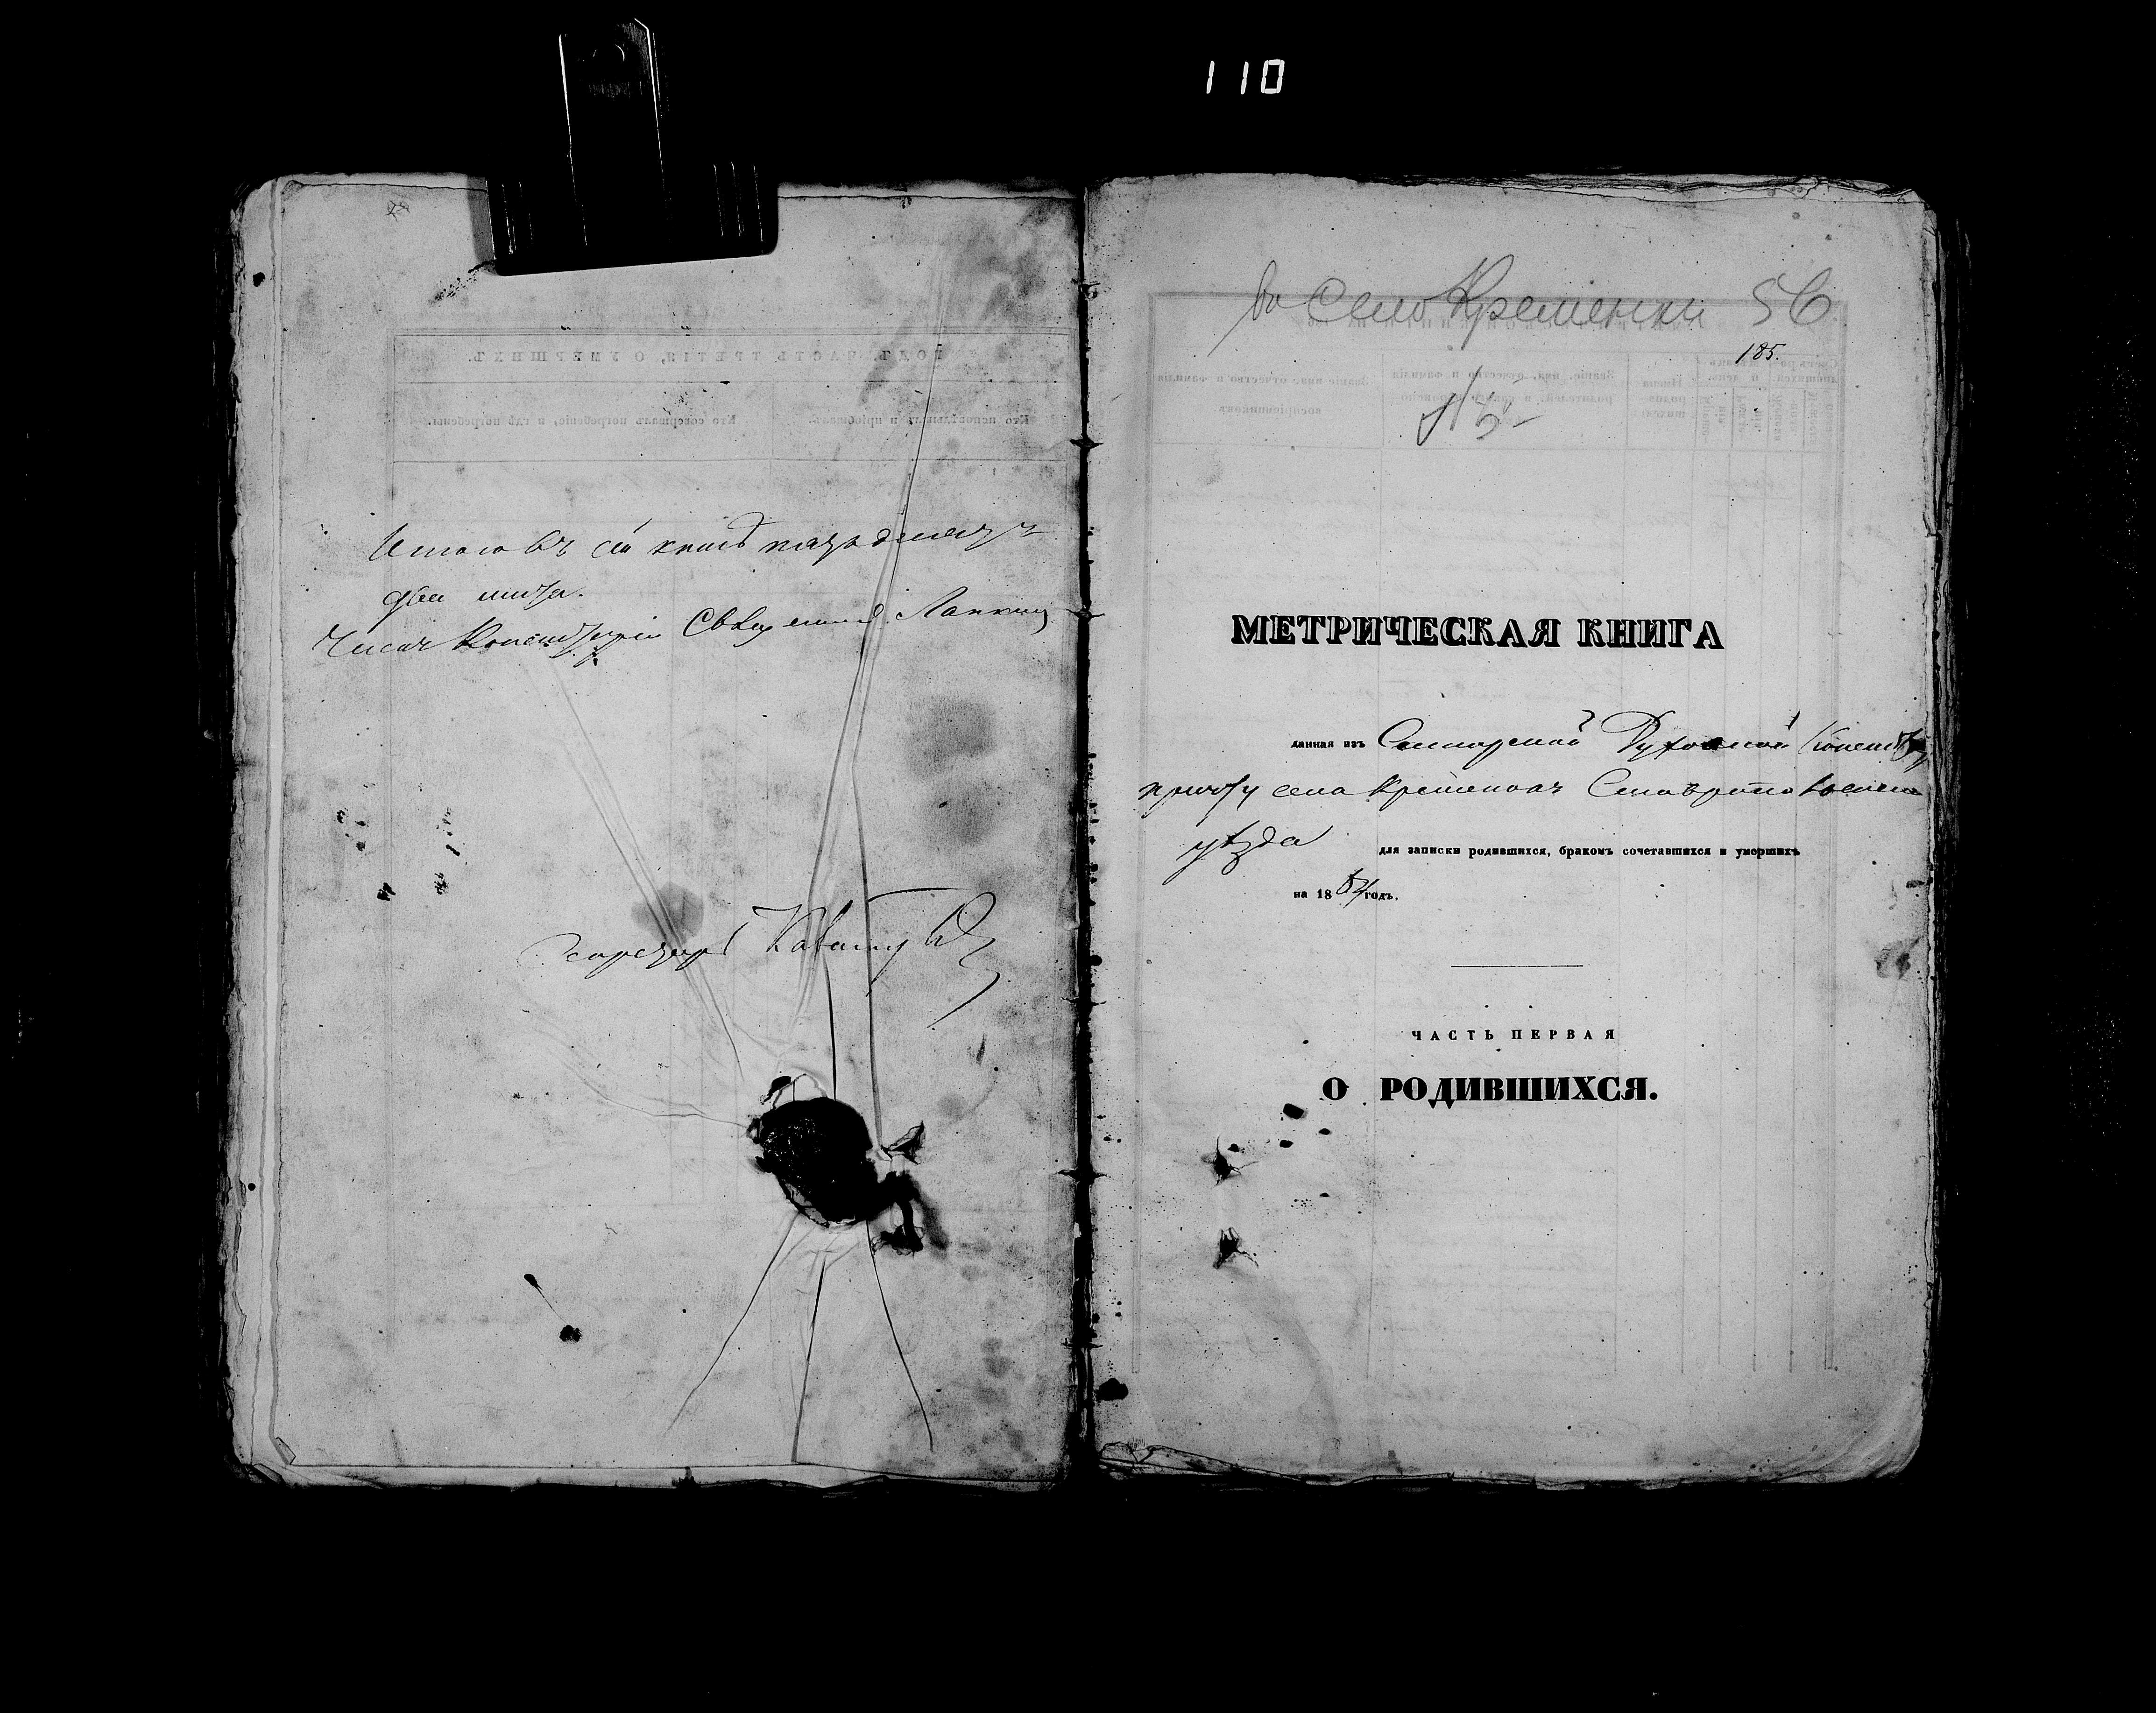 110
Итого въ сей книгѣ пятьдесятъ
два листа.
Членъ Консисторіи Священникъ
Секретарь
во Село Кременки 56
185.
МЕТРИЧЕСКАЯ КНИГА
данная изъ Симбирской Духовной Консист
причту села Кременокъ Ставропольскаго
уѣзда для записки родившихся, бракомъ сочетавшихся и умершихъ
на 18 годъ.
ЧАСТЬ ПЕРВАЯ
О РОДИВШИХСЯ.